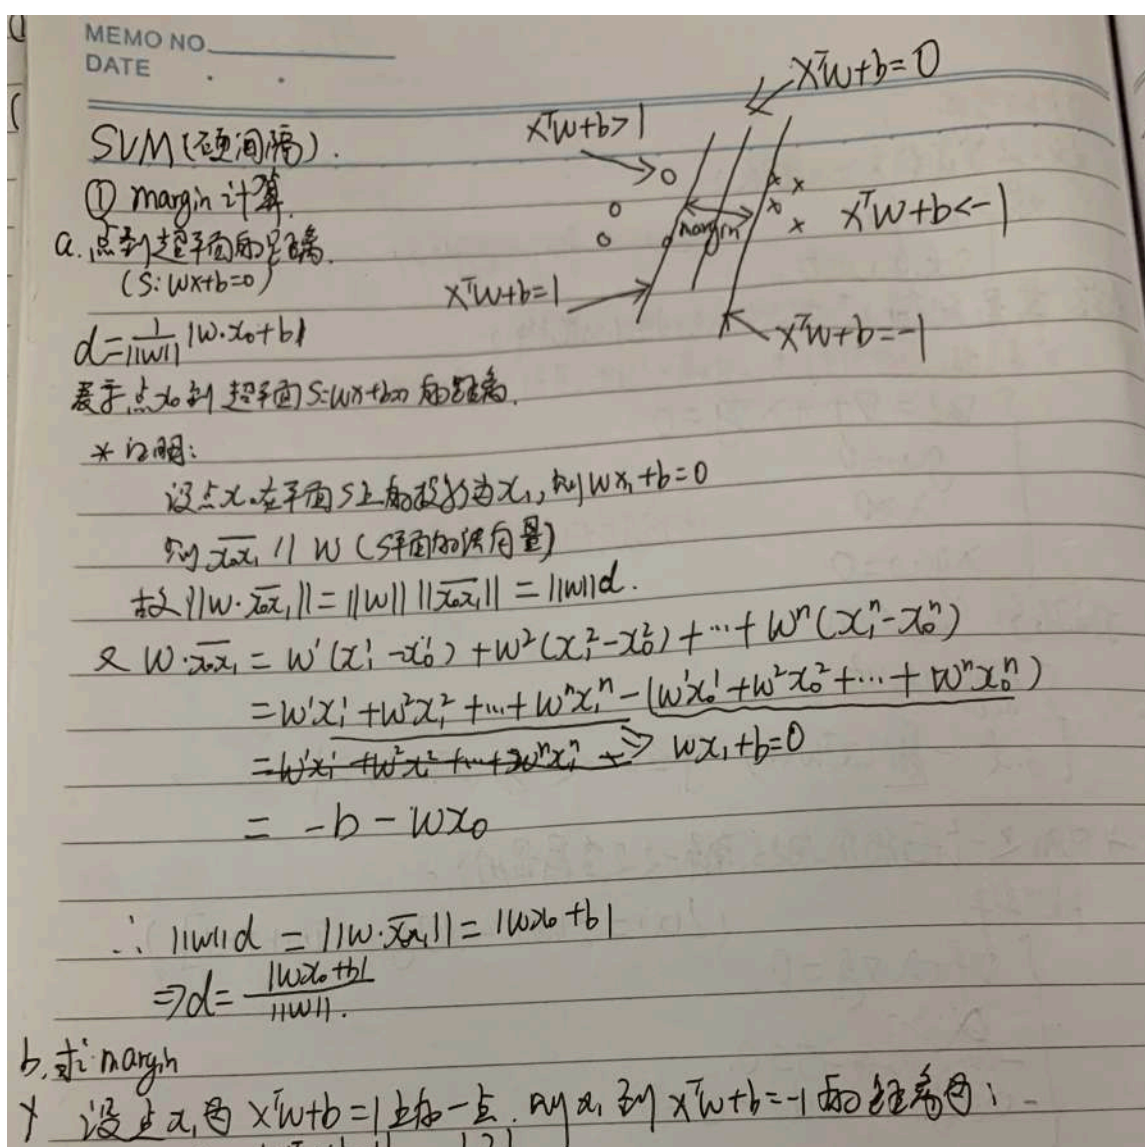 MEMO NO.
DATE . .
SVM(硬间隔).
① margin 计算.
a. 点到超平面的距离.
(S: wx+b=0)
d=1/||w|| |w·x₀+b|
表示点x₀到超平面S:wx+b=0的距离.
xᵀw+b=0
xᵀw+b>1
margin
xᵀw+b<-1
xᵀw+b=1
xᵀw+b=-1
* 证明:
设点x₀在平面S上的投影为x₁, 则wx₁+b=0
则 x₀x₁ // w (S平面的法向量)
故||w·x₀x₁||=||w|| ||x₀x₁||=||w||d.
又 w·x₀x₁ = w¹(x₁¹-x₀¹)+w²(x₁²-x₀²)+···+wⁿ(x₁ⁿ-x₀ⁿ)
=w¹x₁¹+w²x₁²+···+wⁿx₁ⁿ-(w¹x₀¹+w²x₀²+···+wⁿx₀ⁿ)
=w¹x₁¹+w²x₁²+···+wⁿx₁ⁿ - ⇒ wx₁+b=0
= -b-wx₀
∴ ||w||d = ||w·x₀x₁|| = |wx₀+b|
⇒d= |wx₀+b| / ||w||.
b. 求margin
设点x₁为xᵀw+b=1上的一点. 则x₁到xᵀw+b=-1的距离为: